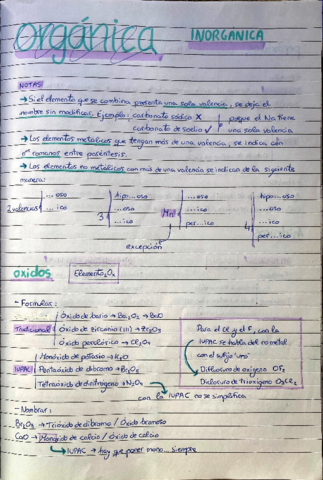 orgánica INORGANICA
NOTAS
→ Si el elemento que se combina presenta una sola valencia, se deja el
nombre sin modificar. Ejemplo: carbonato sódico X porque el Na tiene
carbonato de sodio ✓ una sola valencia
→ Los elementos metálicos que tengan más de una valencia, se indica con
nº romanos entre paréntesis.
→ Los elementos no metálicos con más de una valencia se indican de la siguiente
manera:
2 valencias ...oso ...ico
3 hipo...oso ...oso ...ico
Mn ...oso ...ico per...ico
4 hipo...oso ...oso ...ico per...ico
excepción
óxidos Elemento₂Oₓ
- Formular:
Tradicional
Óxido de bario → Ba₂O₂ → BaO
Óxido perclórico → Cl₂O₇
IUPAC
Monóxido de potasio → K₂O
Pentaóxido de dibromo → Br₂O₅
Tetraóxido de dinitrógeno → N₂O₄
con la IUPAC no se simplifica
Para el Cl y el F, con la
IUPAC se habla del no metal
con el sufijo "uro"
Difluoruro de oxígeno OF₂
Dicloruro de trioxígeno O₃Cl₂
- Nombrar:
Br₂O₃ → Trióxido de dibromo / Óxido bromoso
CaO → Monóxido de calcio / Óxido de calcio
IUPAC → hay que poner mono... siempre